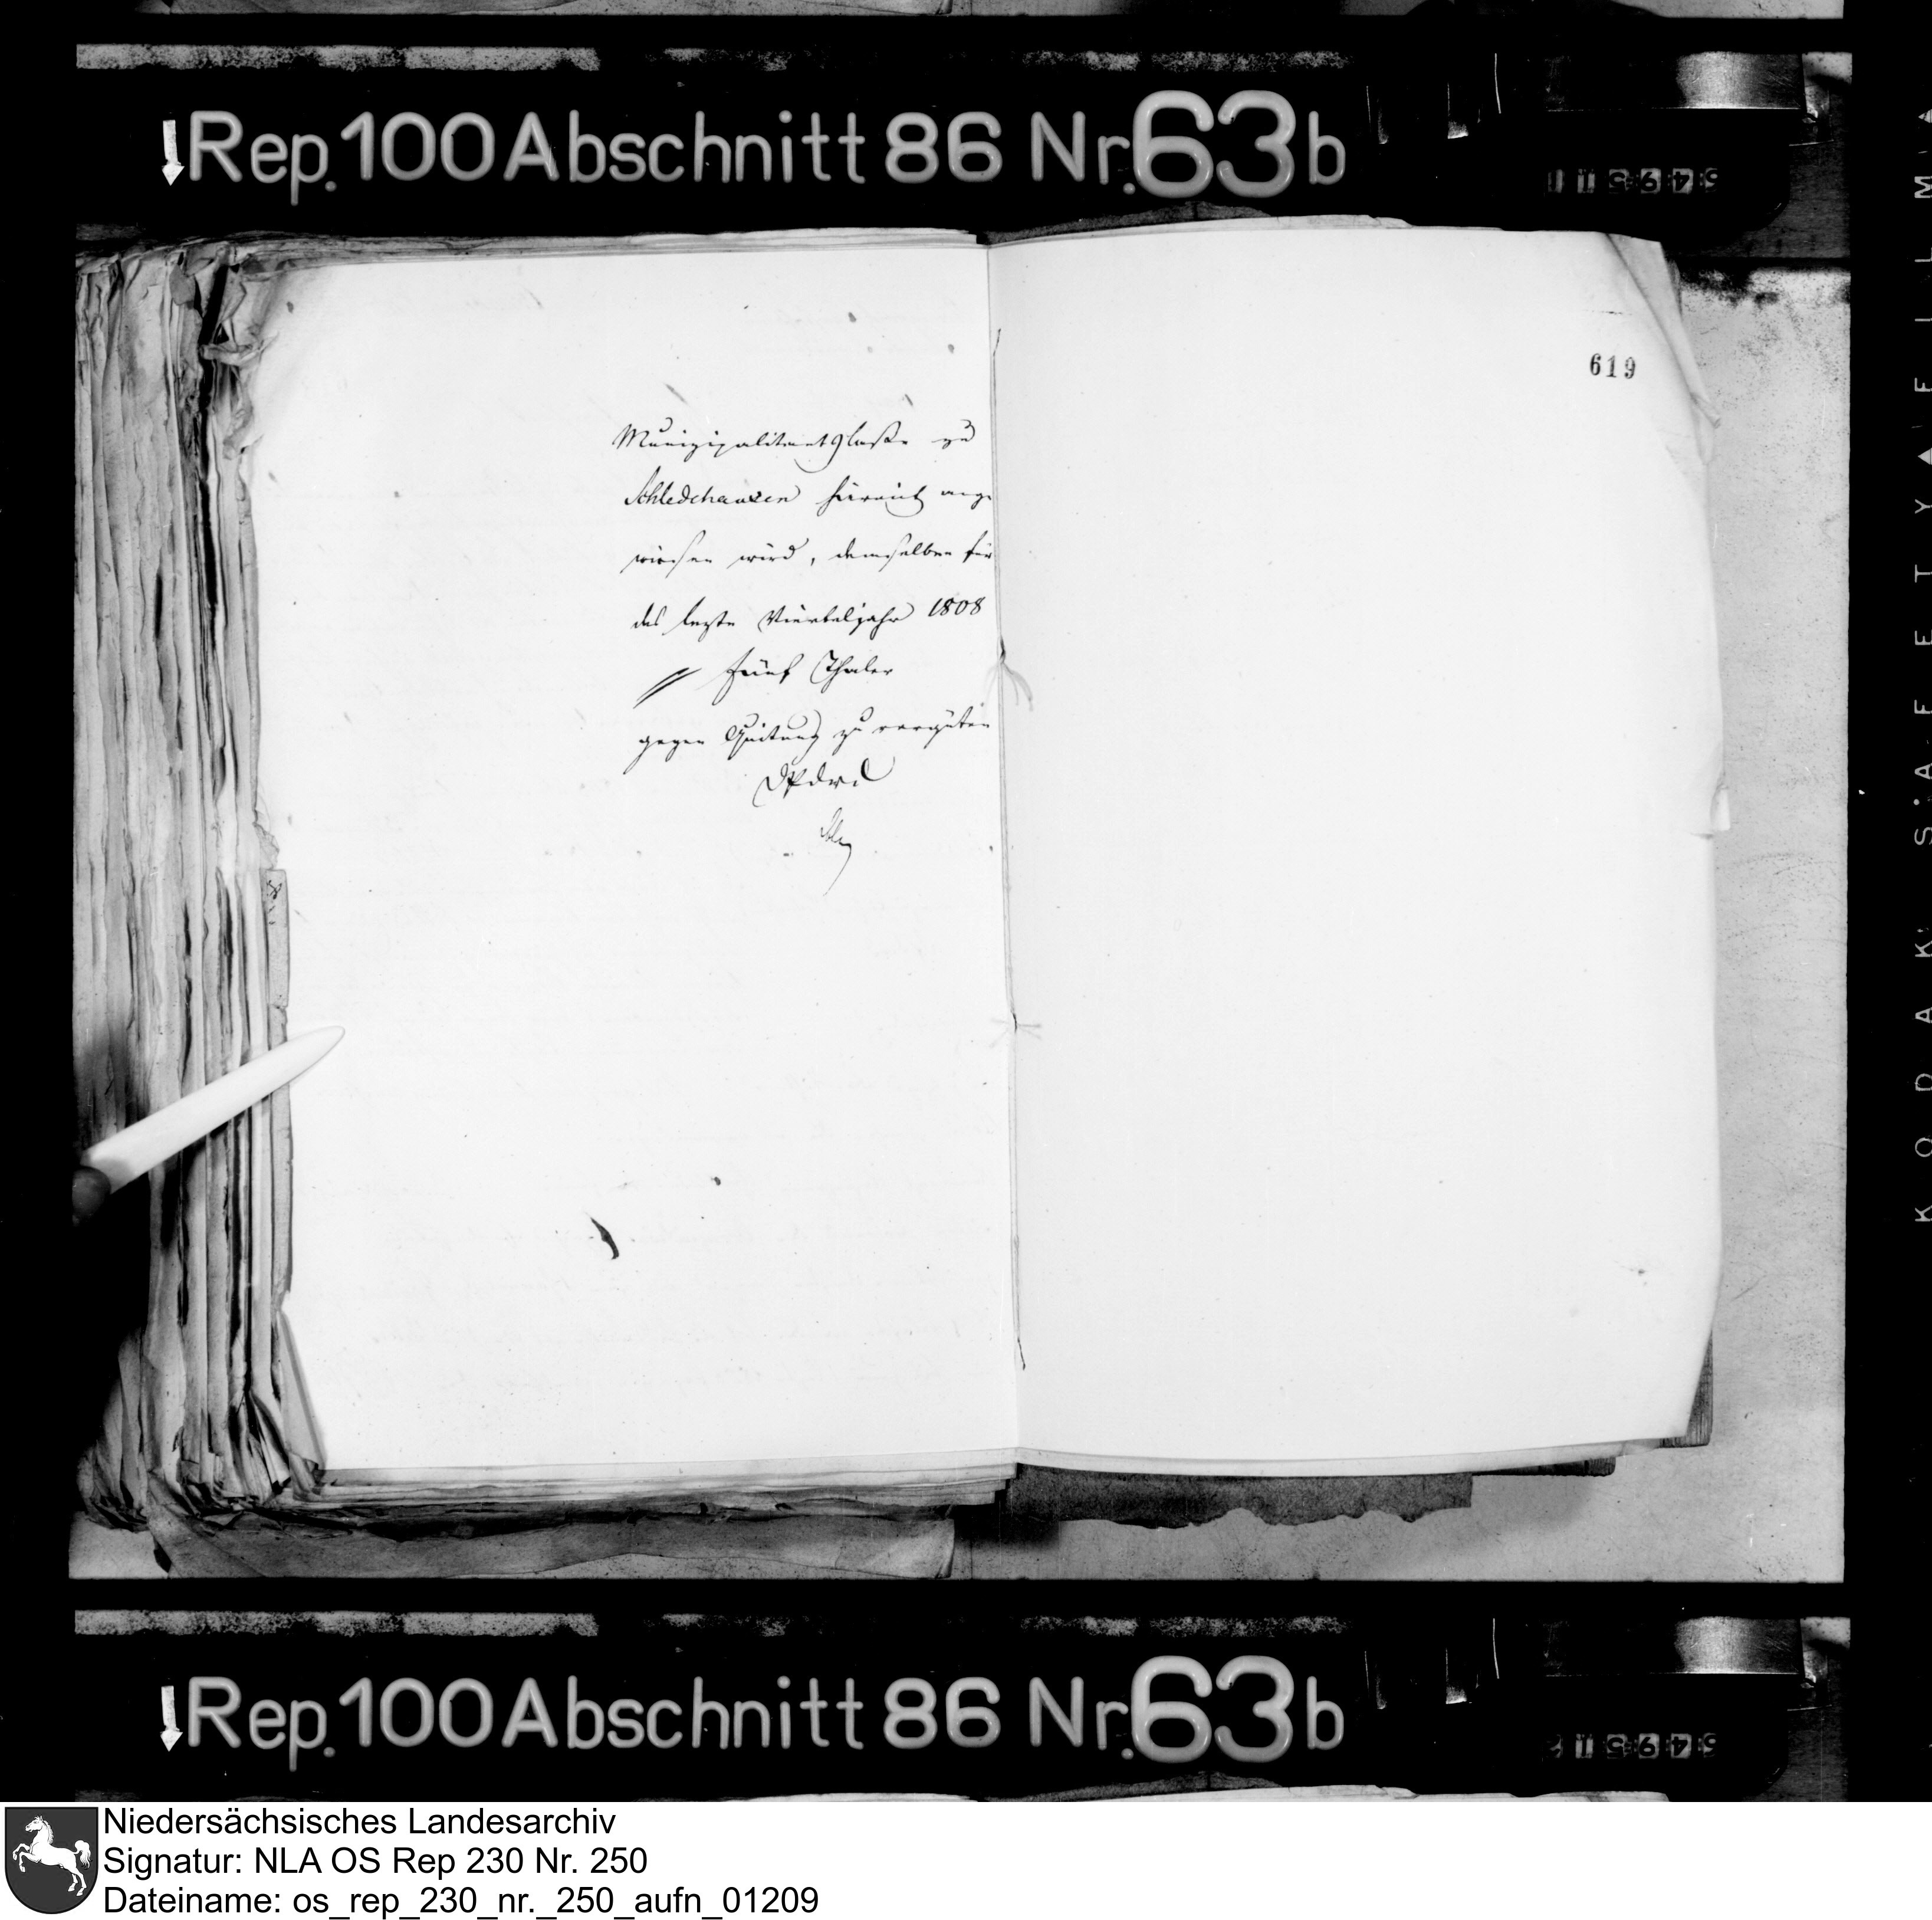 Rep. 100 Abschnitt 86 Nr. 63 b
619
Munizipalitaets Casse zu
Schledehausen hiermit ange
wiesen wird, demselben für
das lezte Vierteljahr 1808
fünf Thaler
gegen Quitung zu vergüten
Rep. 100 Abschnitt 86 Nr. 63 b
KODAK SAFETY FILM
Niedersächsisches Landesarchiv
Signatur: NLA OS Rep 230 Nr. 250
Dateiname: os_rep_230_nr._250_aufn_01209